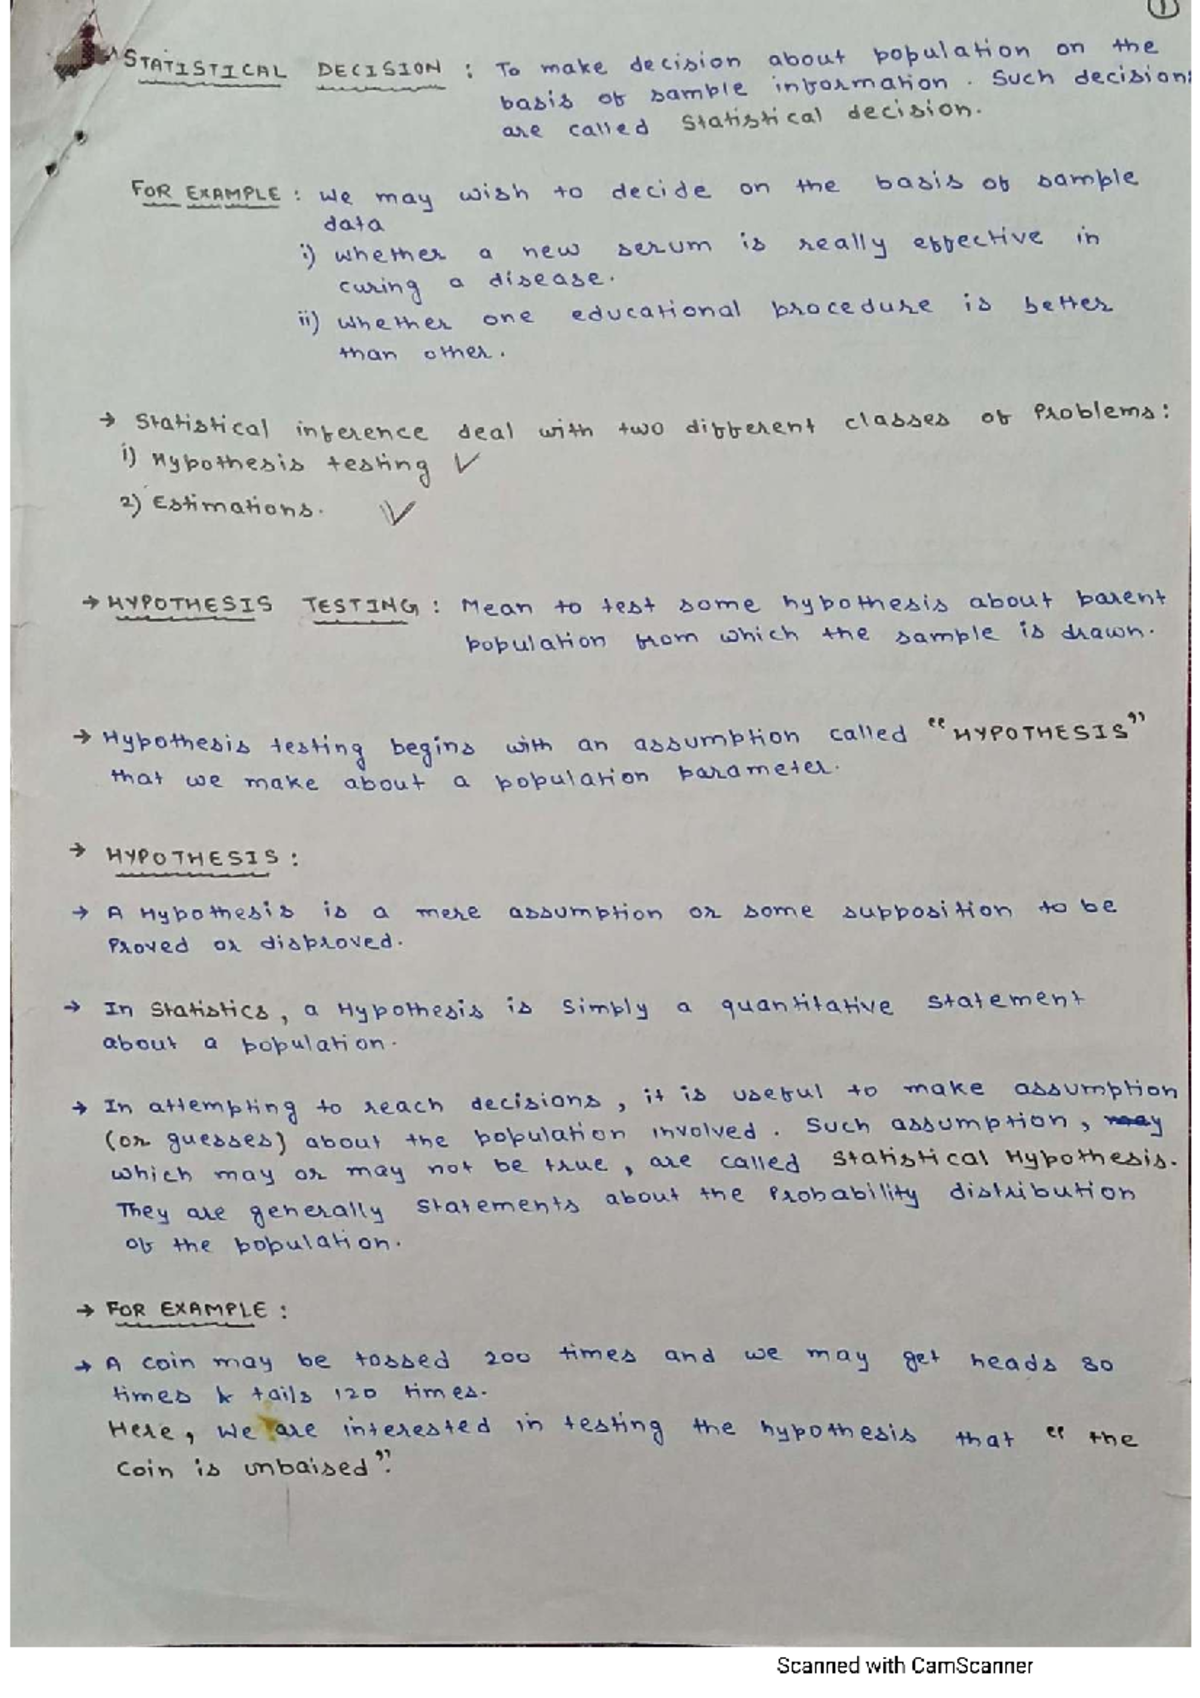 1
STATISTICAL DECISION : To make decision about population on the
basis of sample information. Such decisions
are called Statistical decision.
FOR EXAMPLE : We may wish to decide on the basis of sample
data
i) whether a new serum is really effective in
curing a disease.
ii) whether one educational procedure is better
than other.
→ Statistical inference deal with two different classes of Problems:
1) Hypothesis testing ✓
2) Estimations. ✓
→ HYPOTHESIS TESTING : Mean to test some hypothesis about parent
population from which the sample is drawn.
→ Hypothesis testing begins with an assumption called "HYPOTHESIS"
that we make about a population parameter.
→ HYPOTHESIS :
→ A Hypothesis is a mere assumption or some supposition to be
Proved or disproved.
→ In Statistics, a Hypothesis is Simply a quantitative statement
about a population.
→ In attempting to reach decisions, it is useful to make assumption
(or guesses) about the population involved. Such assumption, may
which may or may not be true, are called Statistical Hypothesis.
They are generally statements about the Probability distribution
of the population.
→ FOR EXAMPLE :
→ A coin may be tossed 200 times and we may get heads 80
times & tails 120 times.
Here, we are interested in testing the hypothesis that "the
coin is unbaised".
Scanned with CamScanner